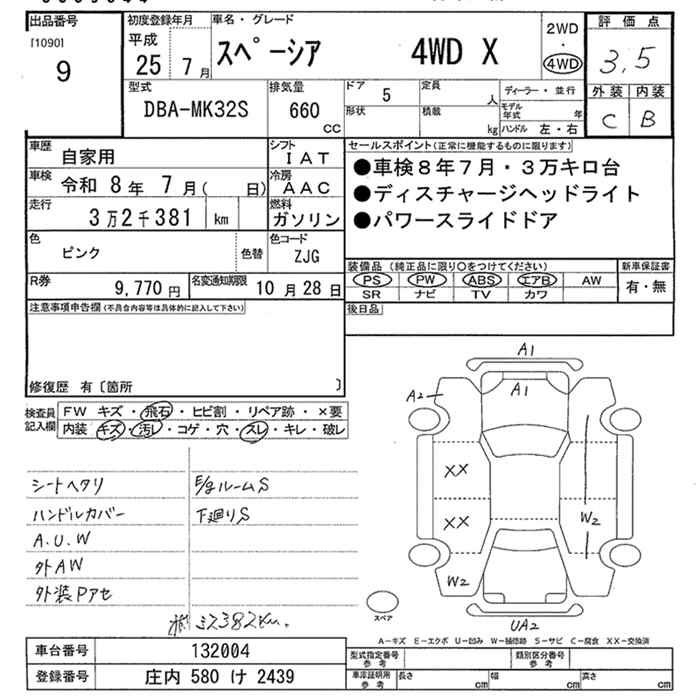 出品番号
[1090]
9
初度登録年月
平成
25 7月
車名・グレード
スペーシア 4WD X
2WD
・
4WD
評価点
3.5
外装 内装
C B
型式
DBA-MK32S
排気量
660
CC
ドア
5
定員
人
形状
積載
kg
ディーラー・並行
モデル年式
年
ハンドル 左・右
車歴
自家用
シフト
IAT
車検
令和 8年 7月( 日)
冷房
AAC
走行
3万2千381 km
燃料
ガソリン
色
ピンク
色替
色コード
ZJG
R券
9,770円
名変通知期限
10月28日
セールスポイント(正常に機能するものに限ります)
●車検8年7月・3万キロ台
●ディスチャージヘッドライト
●パワースライドドア
装備品 (純正品に限り○をつけてください)
新車保証書
PS PW ABS エアB AW
SR ナビ TV カワ
有・無
注意事項申告欄(不具合内容等は具体的に記入して下さい)
後日品
修復歴 有〔箇所 〕
検査員
記入欄
FW キズ・飛石・ヒビ割・リペア跡・×要
内装 キズ・汚レ・コゲ・穴・スレ・キレ・破レ
シートヘタリ
E/gルームS
ハンドルカバー
下廻りS
A.U.W
外AW
外装Pアセ
32382km.
A1
A1
A2
XX
XX
W2
W2
UA2
スペア
A－キズ E－エクボ U－凹み W－補修跡 S－サビ C－腐食 XX－交換済
車台番号
132004
登録番号
庄内 580 け 2439
型式指定番号
参考
類別区分番号
参考
車庫証明用
参考
長さ
cm
幅
cm
高さ
cm